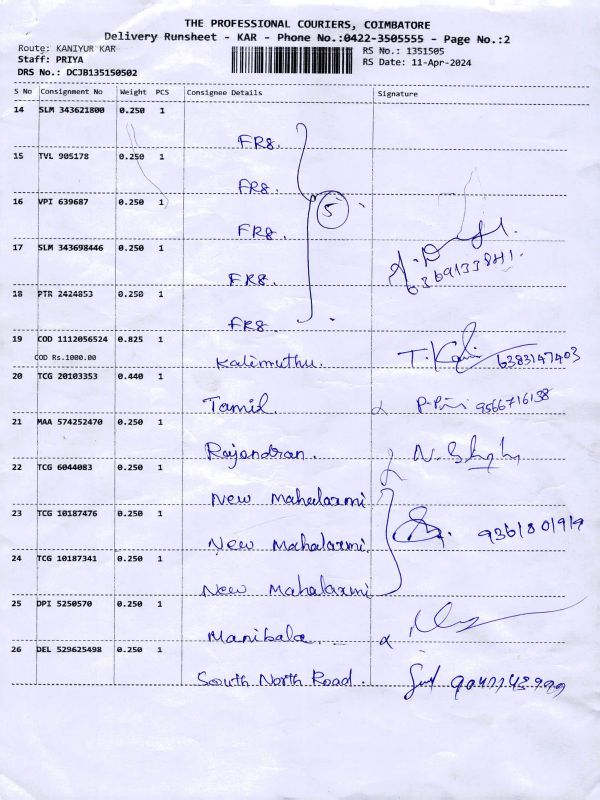 THE PROFESSIONAL COURIERS, COIMBATORE
Delivery Runsheet - KAR - Phone No.:0422-3505555 - Page No.:2
Route: KANIYUR KAR
Staff: PRIYA
DRS No.: DCJB135150502
RS No.: 1351505
RS Date: 11-Apr-2024
S No Consignment No Weight PCS Consignee Details Signature
14 SLM 343621800 0.250 1
FR8.
15 TVL 905178 0.250 1
FR8.
16 VPI 639687 0.250 1
5
FR8.
17 SLM 343698446 0.250 1
FR8.
18 PTR 2424853 0.250 1
FR8.
19 COD 1112056524 0.825 1
COD Rs.1000.00
Kalimuthu. 6383147403
20 TCG 20103353 0.440 1
Tamil. 9566716138
21 MAA 574252470 0.250 1
Rajendran.
22 TCG 6044083 0.250 1
New Mahalaxmi
23 TCG 10187476 0.250 1
New Mahalaxmi.
24 TCG 10187341 0.250 1
New Mahalaxmi
25 DPI 5250570 0.250 1
Manibala.
26 DEL 529625498 0.250 1
South North Road.